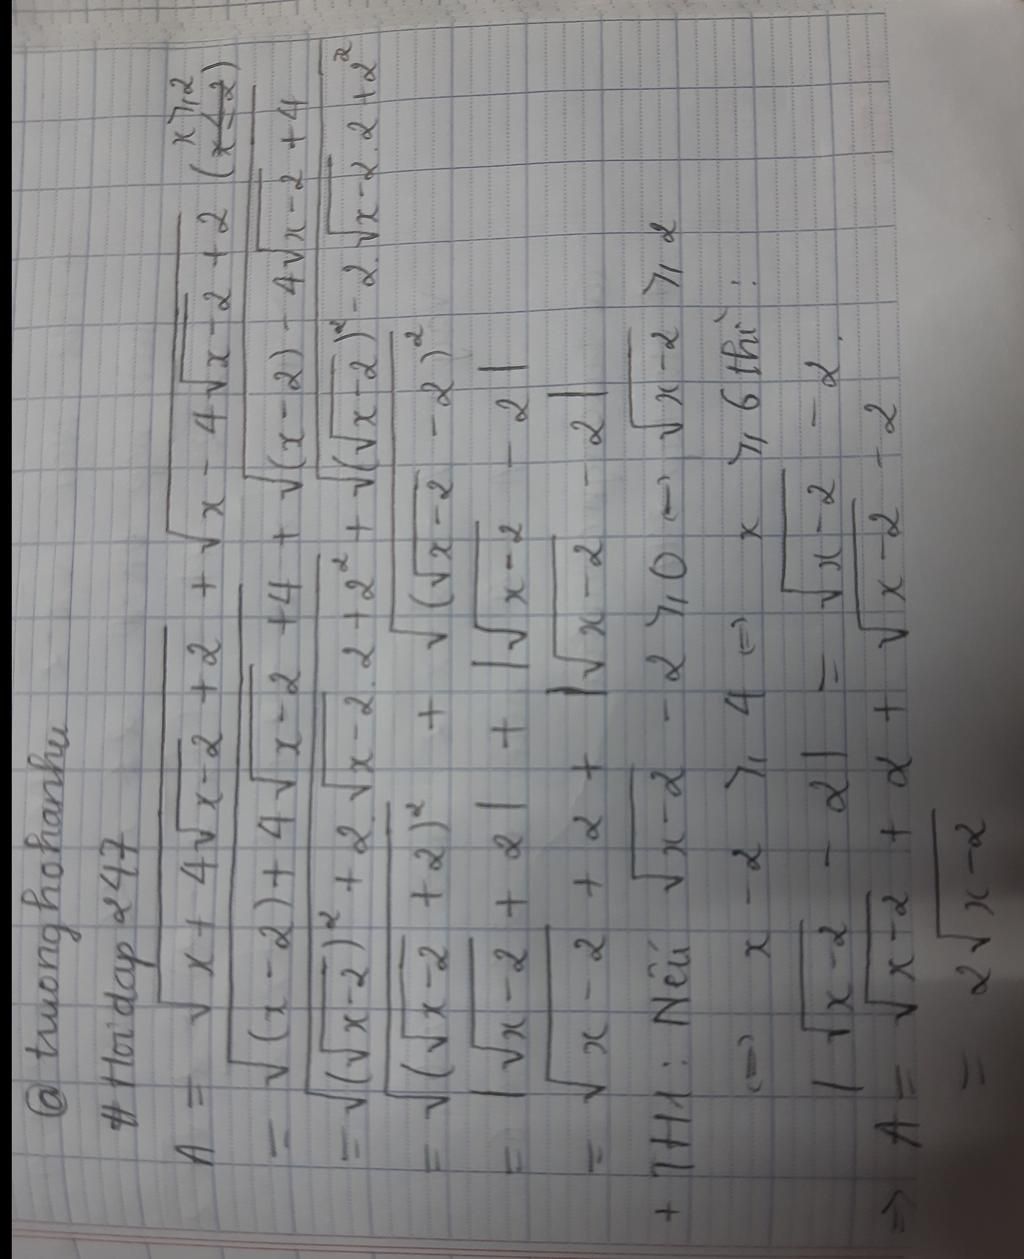 @ truonghohanhu
# Hoidap 247
A = √(x + 4√(x-2) + 2) + √(x - 4√(x-2) + 2) (x ⩾ 2)
= √((x-2) + 4√(x-2) + 4) + √((x-2) - 4√(x-2) + 4)
= √((√(x-2))² + 2.√(x-2).2 + 2²) + √((√(x-2))² - 2.√(x-2).2 + 2²)
= √((√(x-2) + 2)²) + √((√(x-2) - 2)²)
= |√(x-2) + 2| + |√(x-2) - 2|
= √(x-2) + 2 + |√(x-2) - 2|
+ TH1: Nếu √(x-2) - 2 ⩾ 0 ⇔ √(x-2) ⩾ 2
⇔ x - 2 ⩾ 4 ⇔ x ⩾ 6 thì:
|√(x-2) - 2| = √(x-2) - 2.
⇒ A = √(x-2) + 2 + √(x-2) - 2
= 2√(x-2)